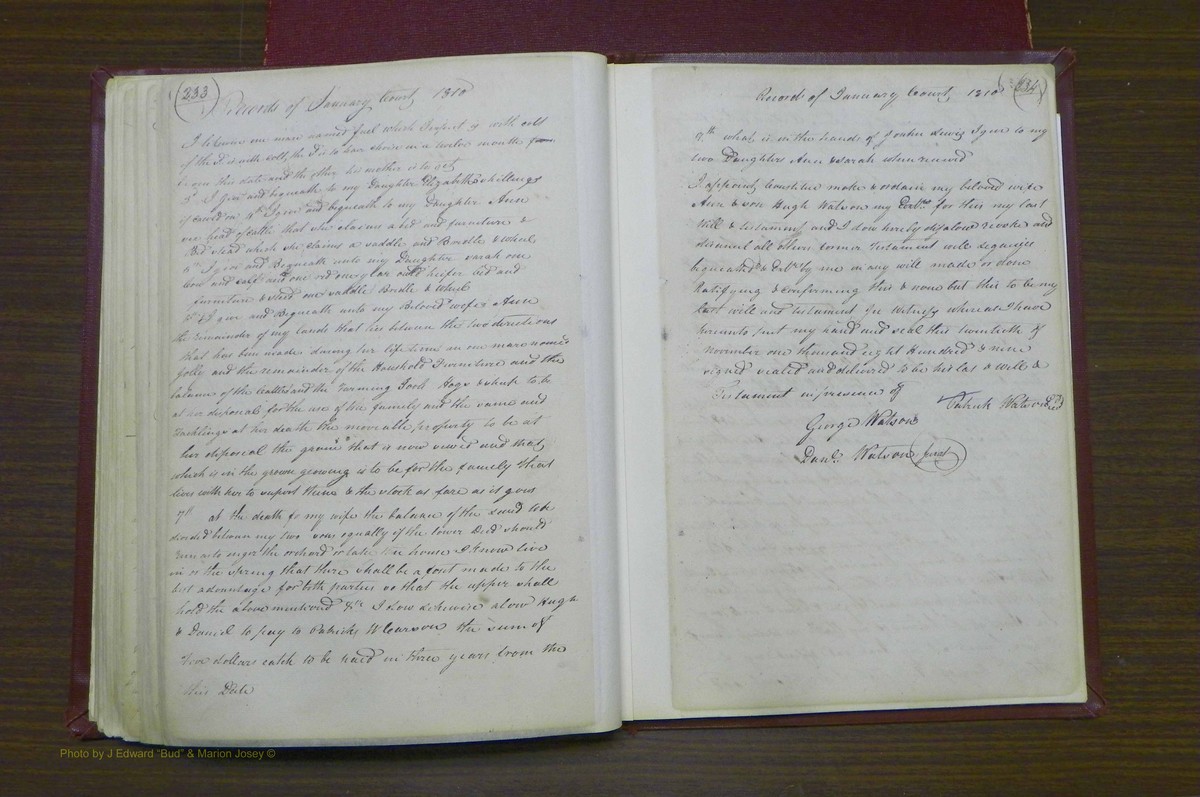 333
Records of January Court 1810
I to have one mare named fuel which Respect is with colt
of the F. is with colt, the F is to have shown in a twelve months from
before this date and the other his mother is to get
3d I give and bequeath to my Daughter Elizabeth shillings
if called on 4th I give and bequeath to my Daughter Ann
one head of cattle that she claims a bed and furniture &
Bed stead which she claims a saddle and Bridle & wheel
5th I give and Bequeath unto my Daughter Sarah one
Cow and calf and one red one year old heifer bed and
furniture & stead one saddle Bridle & wheel
I give and Bequeath unto my Beloved wife Ann
the remainder of my lands that lies between the two directions
that has been made during her life time on one mare named
Jolly and the remainder of the Houshold Furniture and the
balance of the Cattle and the Farming Tools Hogs & sheep to be
at her disposal for the use of the family and the same and
Tacklings at her death the moveable property to be at
her disposal the grain that is now sowed and that
which is in the grown growing is to be for the family that
lives with her to suport them & the stock as fare as it goes
7th at the death fo my wife the balance of the Land to be
devided between my two sons equally if the lower Deed should
run acto nger the orchard or take the house I know live
in or the spring that there shall be a foot made to the
best advantage for both parties so that the upper shall
hold the above mentioned &c I Low Likewise alow Hugh
& Daniel to pay to Patrick W the sum of
dollars each to be paid in three years from the
this Date
334
Records of January Court 1810
9th what is in the hands of Josher Lewis I give to my
two Daughters Ann & Sarah when received
I appoint Constitue make & ordain my beloved wife
Ann & son Hugh Watson my Exrs. for this my last
Will & testament and I dow hereby disalow revoke and
disannul all other former Testament wills Legacyes
bequeathed & Exbr by me in any will made or done
Ratifying & confirming this & none but this to be my
last will and testament In Witness whereas I have
hereunto set my hand and seal this twentieth of
November one thousand eight Hundred & nine
signed sealed and delivered to be his las a will &
Testament in presence of
Patrick Watson
George Watson
Danl. Watson Jurat
Photo by J Edward "Bud" & Marion Josey ©